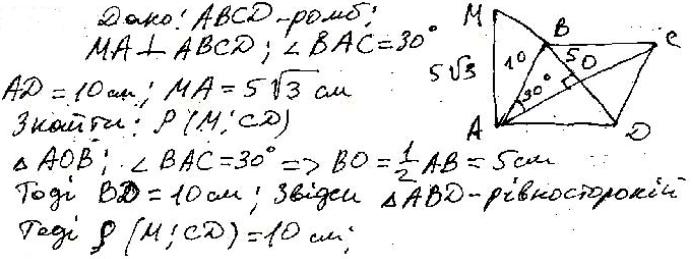 Дано: ABCD-ромб;
MA⊥ABCD; ∠BAC=30°
AD=10см; MA=5√3 см
Знайти: ρ(M;CD)
△AOB; ∠BAC=30° => BO=1/2AB=5см
Тоді BD=10см; Звідси △ABD-рівносторонній
Тоді ρ(M;CD)=10см;
M
B
C
5√3
10
5
O
30°
A
D